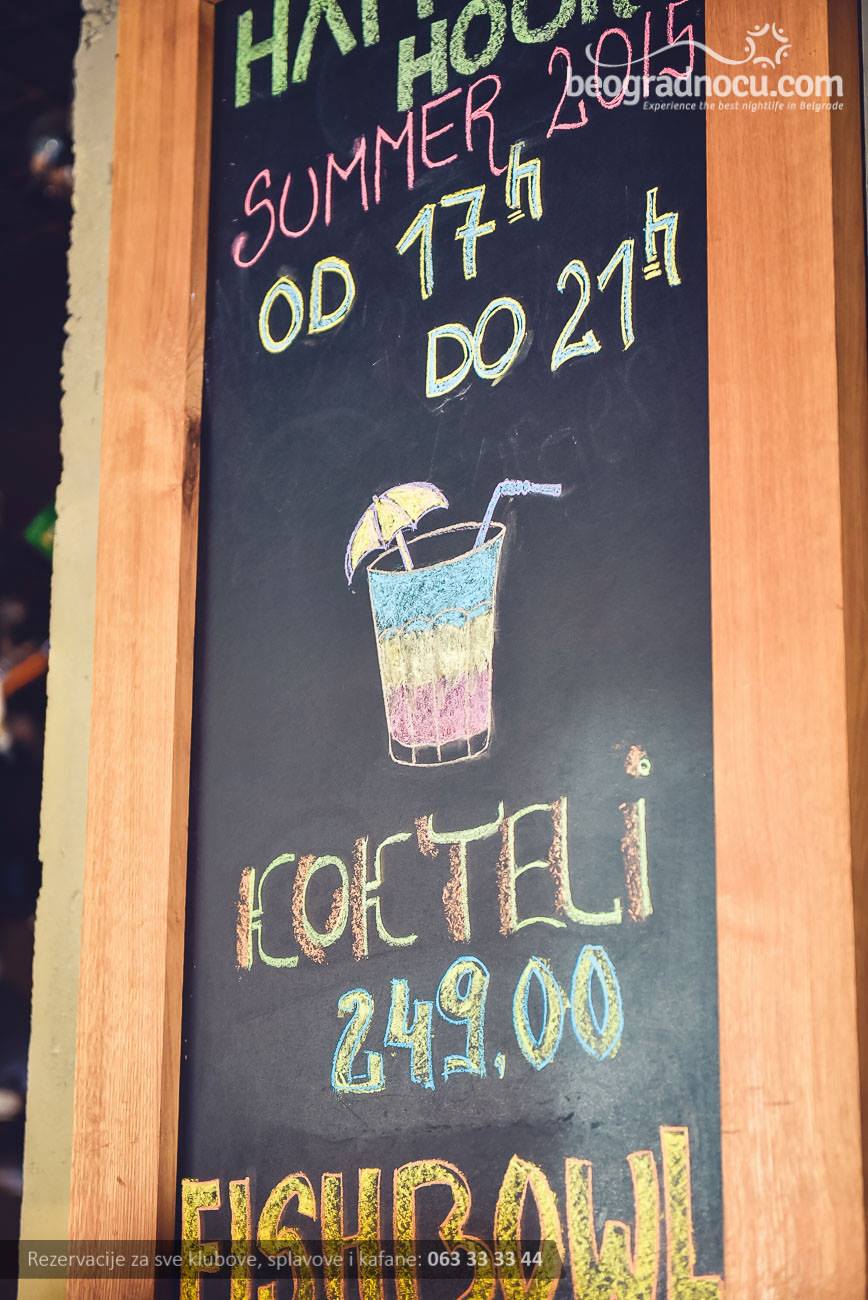 HAPPY
HOUR
SUMMER 2015
beogradnocu.com
Experience the best nightlife in Belgrade
OD 17h
DO 21h
KOKTELi
249,00
FISHBOWL
Rezervacije za sve klubove, splavove i kafane: 063 33 33 44